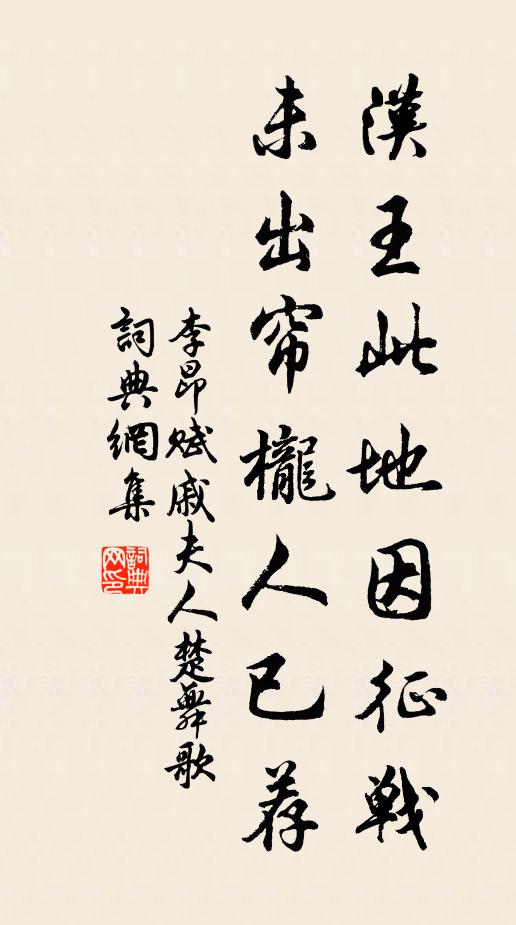 漢王此地因征戰
未出帘櫳人已荐
李昂賦戚夫人楚舞歌
詞典網集
詞典
网印